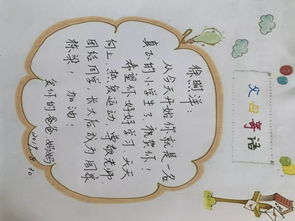 徐熙洋:
从今天开始你就是一名
真正的小学生了,爸爸
希望你好好学习 天天
向上,热爱运动,尊敬老师
团结同学,长大后成为国家
栋梁! 加油!
爱你的爸爸 妈妈
父母寄语